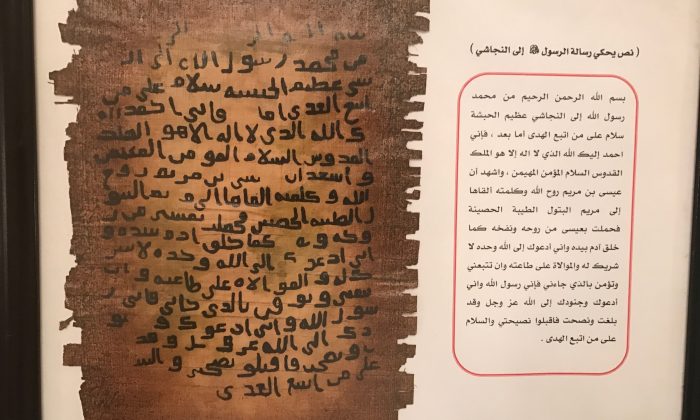 ( نص يحكي رسالة الرسول ﷺ إلى النجاشي )
بسم الله الرحمن الرحيم من محمد
رسول الله إلى النجاشي عظيم الحبشة
سلام على من اتبع الهدى أما بعد ، فإني
احمد إليك الله الذي لا اله إلا هو الملك
القدوس السلام المؤمن المهيمن ، واشهد أن
عيسى بن مريم روح الله وكلمته ألقاها
إلى مريم البتول الطيبة الحصينة
فحملت بعيسى من روحه ونفخه كما
خلق آدم بيده واني أدعوك إلى الله وحده لا
شريك له والموالاة على طاعته وان تتبعني
وتؤمن بالذي جاءني فإني رسول الله واني
أدعوك وجنودك إلى الله عز وجل وقد
بلغت ونصحت فاقبلوا نصيحتي والسلام
على من اتبع الهدى .
سم الله
من محمد رسول الله الى
سى عظيم الحبسه سلام على من
اتبع الهدى اما فانى احمد ا
ك الله الدى لا اله الا هو الملك
القدوس السلام المومن المهيمن
و اسهد ان سى بن مريم روح
الله و كلمته القاها الى مريم البتو
ل الطيبه الحصينه من ر
كما خلق ادم بيده و
انى ادعوك الى الله وحده لا سر
يك له و الموالاه على طاعته و ان
بالدى جانى فانى ر
سول الله و انى ادعوك و
دك الى الله عز و جل و قد
فاقبلو و السلا
على من اتبع الهدى